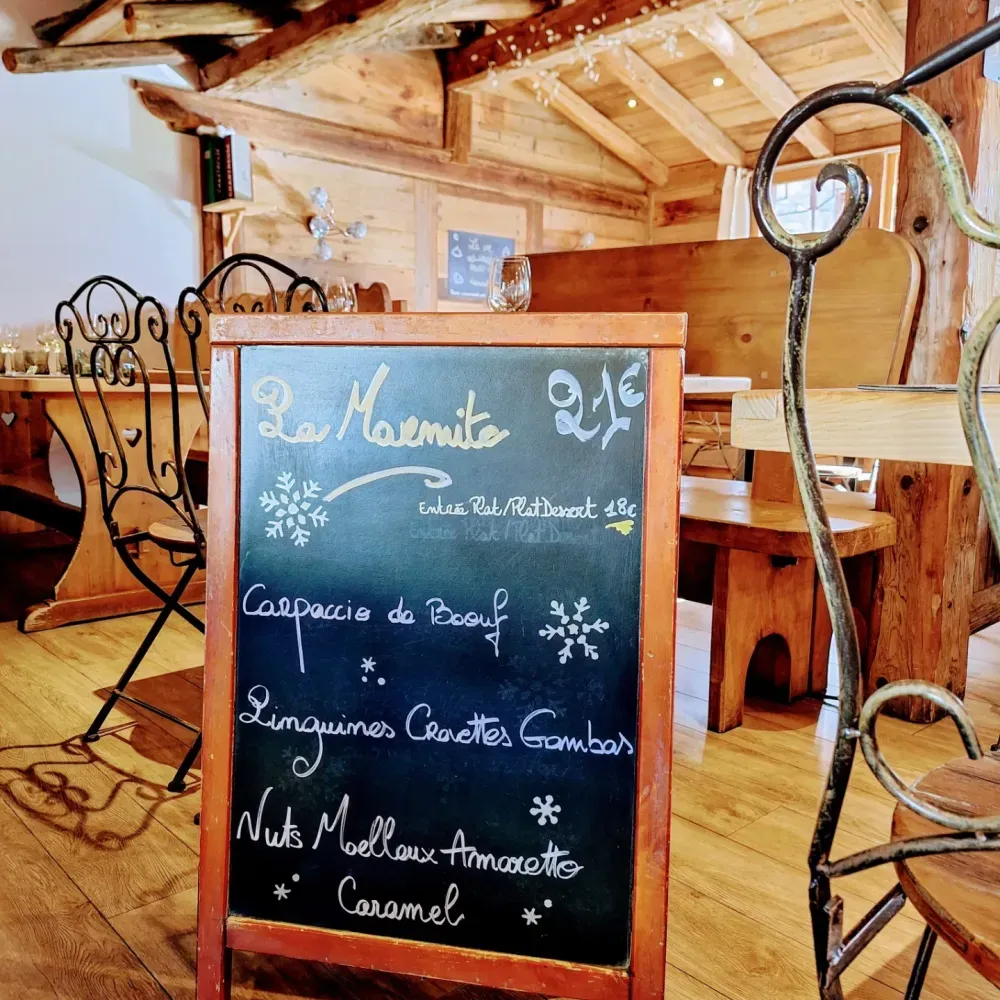 La Marmite 21€
Entrée Plat/Plat Dessert 18€
Carpaccio de Boeuf
Linguines Crevettes Gambas
Nuts Moelleux Amaretto
Caramel